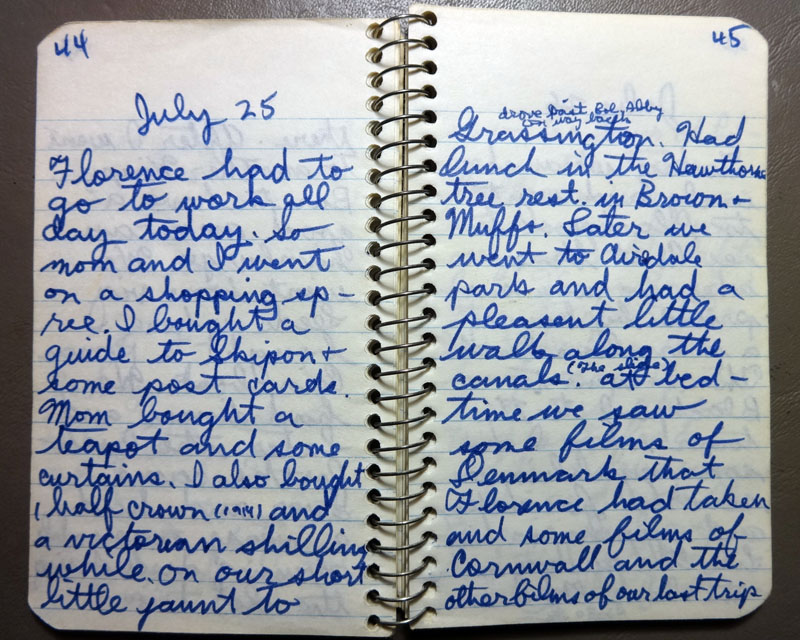 44
July 25
Florence had to
go to work all
day today. So
mom and I went
on a shopping sp-
ree. I bought a
guide to Skipon +
some post cards.
Mom bought a
teapot and some
curtains. I also bought
1 half crown (1914) and
a victorian shilling
while. on our short
little jaunt to
45
drove past Bol. Abby
on way back
Grassington. Had
lunch in the Hawthorne
tree rest. in Brown +
Muffs. Later we
went to Airedale
park and had a
pleasent little
walk along the
canals. (The slide) at bed-
time we saw
some films of
Denmark that
Florence had taken
and some films of
Cornwall and the
other films of our last trip